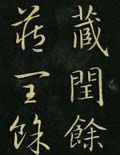 藏閏餘
藏閏餘